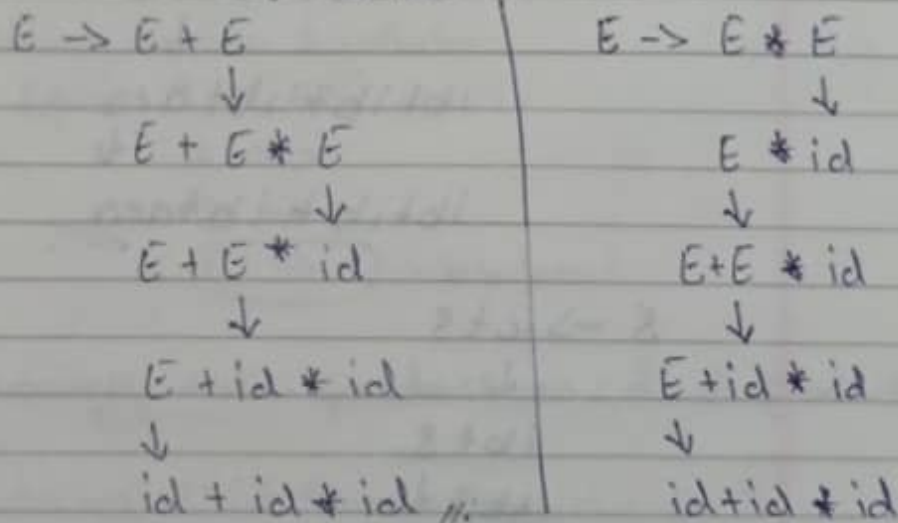 E -> E + E
↓
E + E * E
↓
E + E * id
↓
E + id * id
↓
id + id * id //.
E -> E * E
↓
E * id
↓
E+E * id
↓
E+id * id
↓
id+id * id